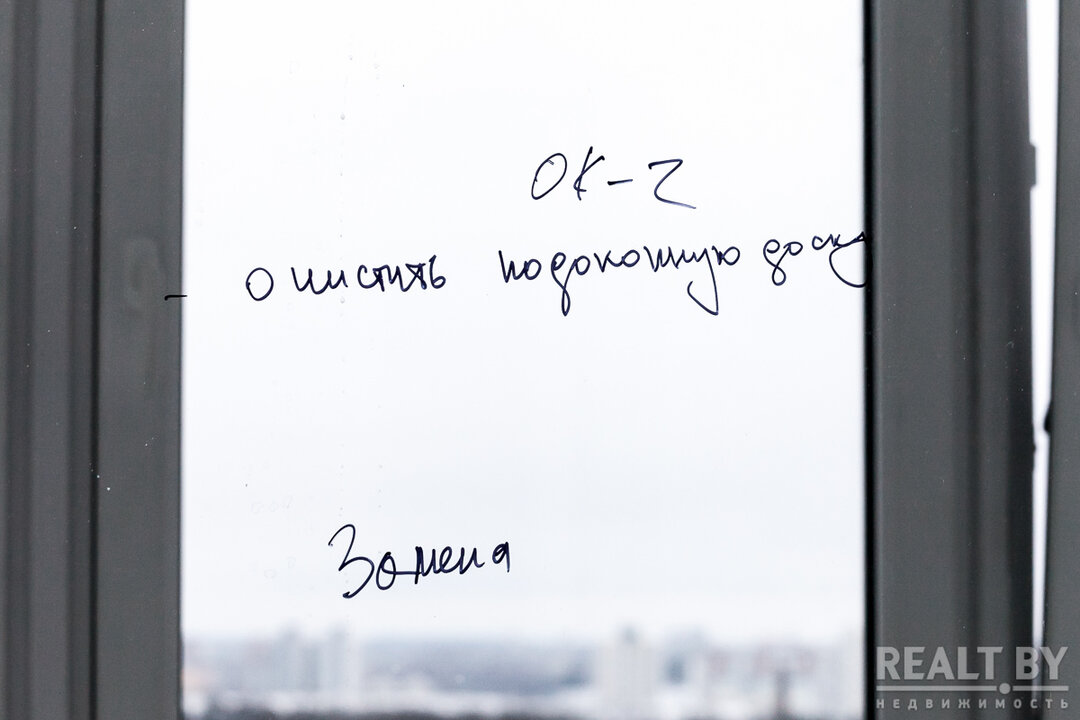 ОК-2
очистить подоконную доску
Замена
REALT.BY
НЕДВИЖИМОСТЬ